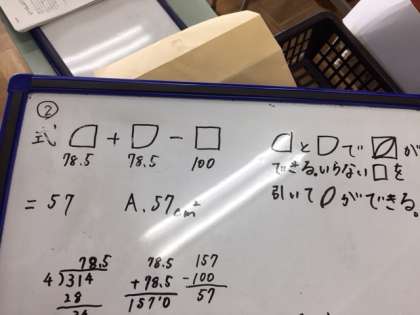 ②
式 + −
78.5 78.5 100
= 57 A. 57cm²
と で が
できる。いらない を
引いて ができる。
78.5
4)314
28
78.5
+78.5
157.0
157
-100
57